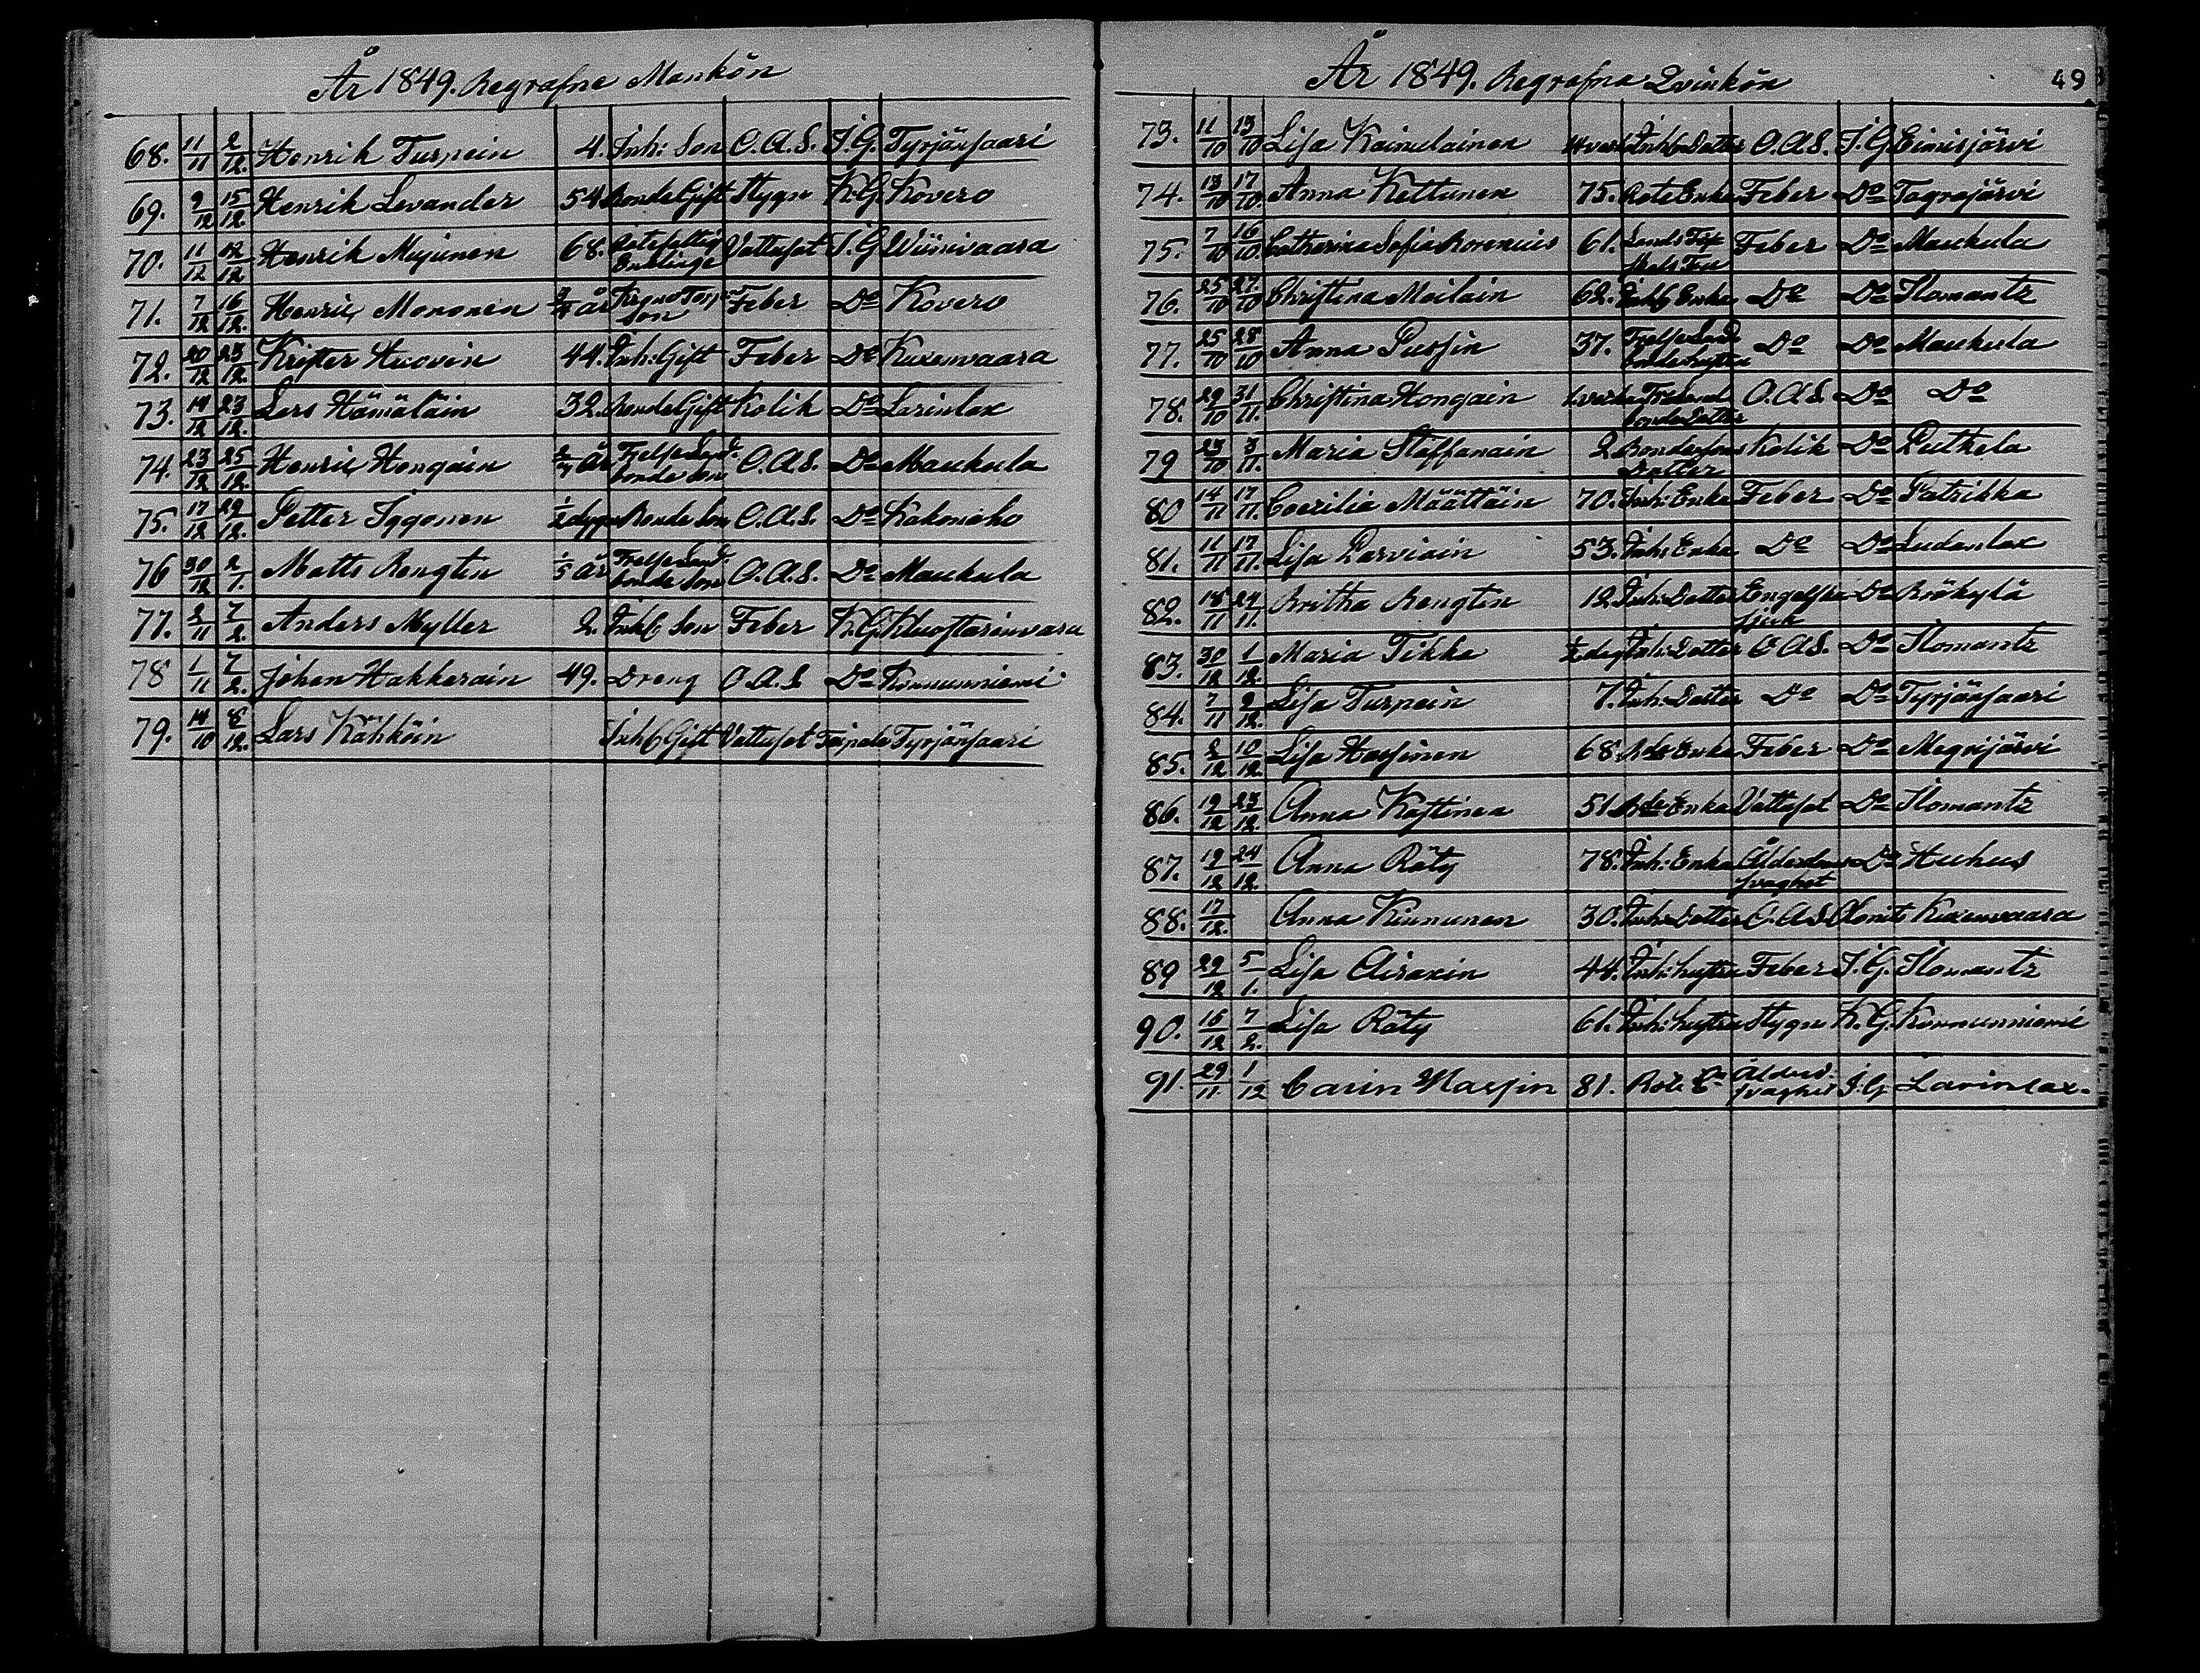 År 1849. Begrafne Mankön
68. 11/11 2/12. Henrik Turpein 4. Inh: Son O.A.S. I.G. Tyrjänsaari
69. 9/12 15/12. Henrik Levander 54 Bonde Gift Stygn K.G. Kovero
70. 11/12 12/12 Henrik Mujunen 68. Rotefattig Enkling Vattusot I.G. Wiinivaara
71. 7/12 16/12. Henric Mononen År Son Feber Do Kovero
72. 20/12 23/12. Krister Huovin 44. Inh: Gift Feber Do Kuxenvaara
73. 14/12 23/12. Lars Hämäläin 32. Bonde Gift Kolik Do Larinlax
74. 23/12 25/12. Henric Hongain År Frelse Land bonde Son O.A.S. Do Maukula
75. 17/12 29/12. Petter Iggonen 1/2 dygn Bonde Son O.A.S. Do Kakonaho
76 30/12 2/1. Matts Bengtin 1/5 År Frelse Land bonde Son O.A.S. Do Maukula
77. 2/11 7/2. Anders Myller 2. Inh: Son Feber K.G. Kluostarinvaara
78 1/11 7/2. Johan Hakkarain 49. Dreng O.A.S Do Konnunniemi
79. 14/10 8/12. Lars Kähköin Inh: Gift Vattusot Taipale Tyrjänsaari
År 1849. Begrafna Qvinkön 49
73. 11/10 13/10 Lisa Kainulainen Inh: Dotter O.A.S. I.G Eimisjärvi
74. 13/10 17/10. Anna Kettunen 75. Rote Enka Feber Do Tograjärvi
75. 7/10 16/10. Catharina Sofia Borenius 61. Lands Fru Feber Do Maukula
76. 25/10 27/10 Christina Moilain 62. Inh: Enka Do Do Ilomantz
77. 25/10 28/10 Anna Pussin 37. Frelse Land bonde hustru Do Do Maukula
78. 29/10 31/11. Christina Hongain 1. vecka Frelse Land bonde Dotter O.A.S. Do Do
79 23/10 3/11. Maria Staffanain 2 Bondesons Dotter Kolik Do Putkela
80 14/11 17/11. Coecilia Määttäin 70. Inh: Enka Feber Do Patrikka
81. 11/11 17/11. Lisa Parviain 53. Inh: Enka Do Do Ludanlax
82. 18/11 24/11. Britha Bengtin 12 Inh: Dotter Engelska sjuk Do Riökylä
83. 30/12 1/12. Maria Tikka 1/2 dag Inh: Dotter O.A.S. Do Ilomantz
84. 7/11 9/12. Lisa Turpein 7. Inh: Dotter Do Do Tyrjänsaari
85. 2/12 10/12 Lisa Hassinen 68. Enka Feber Do Megrijärvi
86. 19/12 23/12. Anna Kostinen 51 Enka Vattusot Do Ilomantz
87. 19/12 24/12. Anna Räty 78. Inh: Enka Ålderdoms svaghet Do Huhus
88. 17/12. Anna Kinnunen 30. Inh: Dotter O.A.S Kuxenvaara
89 29/12 5/1. Lisa Airaxin 44. Inh: hustru Feber I.G. Ilomantz
90. 16/12 7/2. Lisa Räty 61. Inh: hustru Stygn K.G. Konnunniemi
91. 29/11. 1/12 Carin Massin 81. Rote Ea Ålders: svaghet I.G Larinlax.